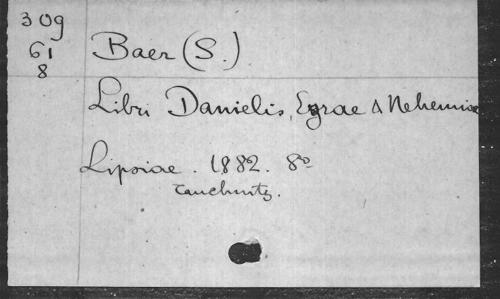 309
61
8
Baer (S.)
Libri Danielis, Ezrae & Nehemiae
Lipsiae. 1882. 8º
Tauchnitz.